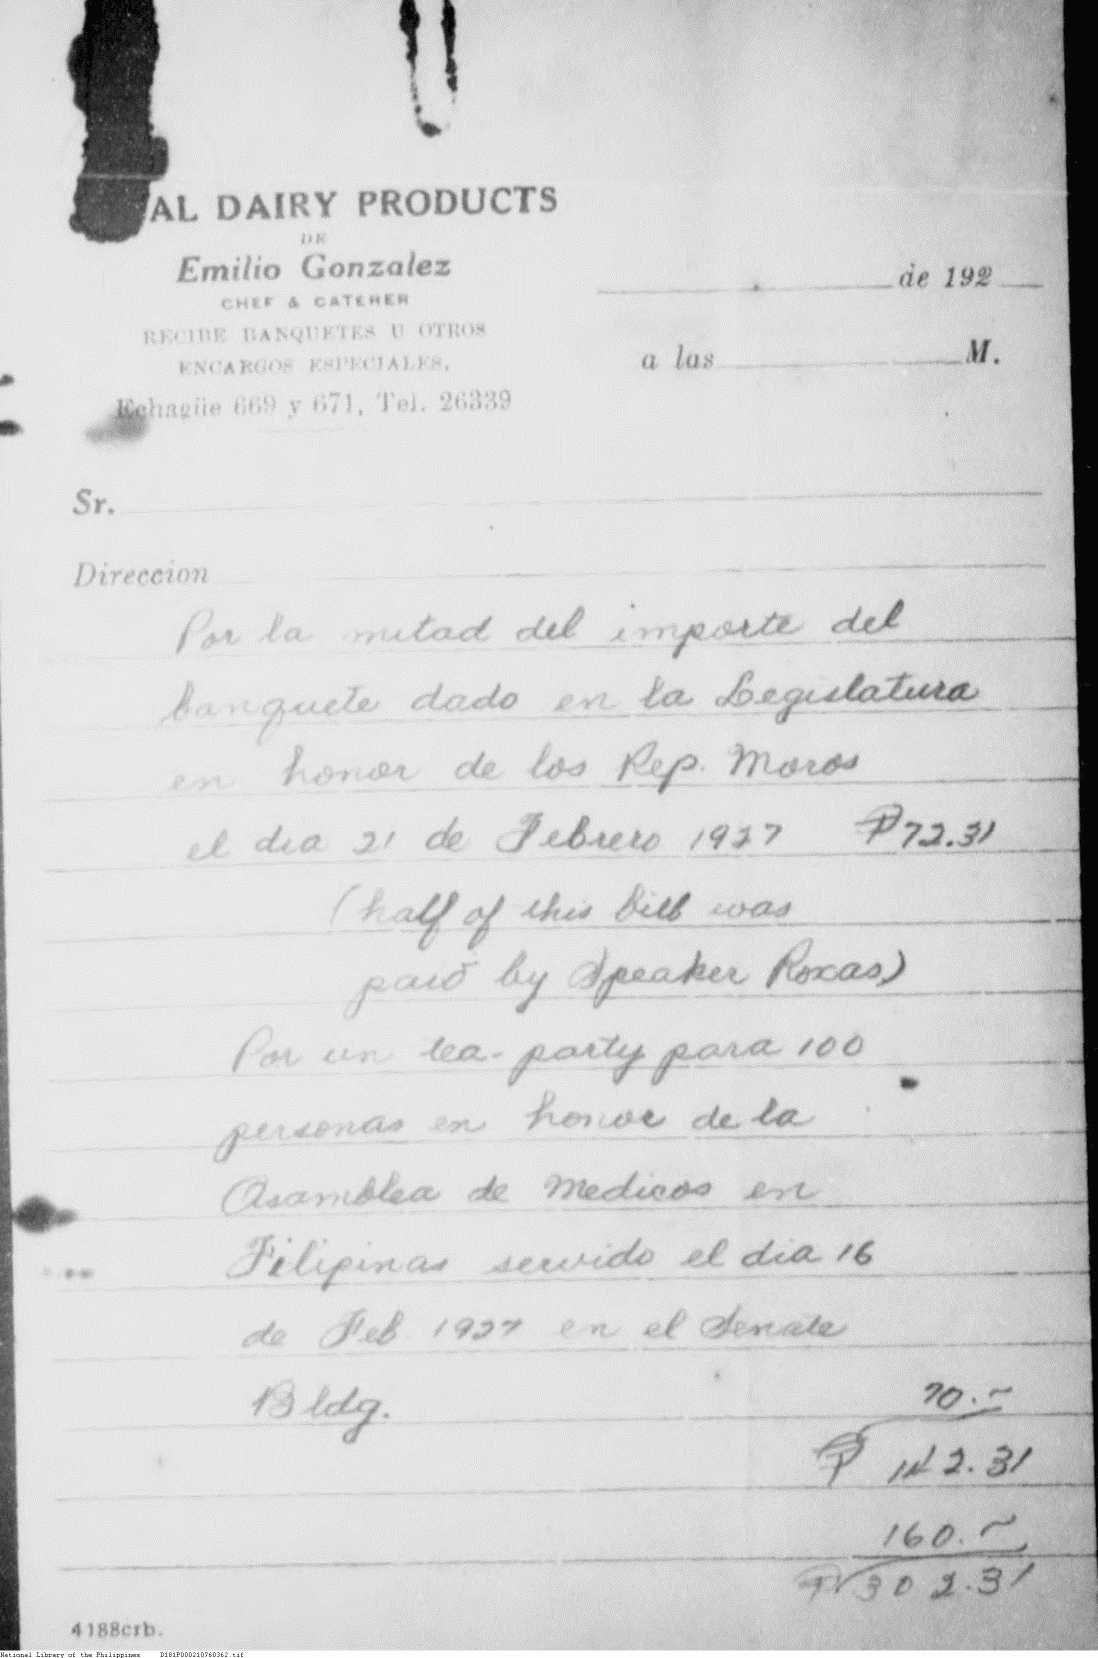 AL DAIRY PRODUCTS
DE
Emilio Gonzalez
CHEF & CATERER
RECIBE BANQUETES U OTROS
ENCARGOS ESPECIALES,
Echagüe 669 y 671, Tel. 26339
de 192
a las M.
Sr.
Direccion
Por la mitad del importe del
banquete dado en la Legislatura
en honor de los Rep. Moros
el dia 21 de Febrero 1927 ₱72.31
(half of this bill was
paid by Speaker Roxas)
Por un tea-party para 100
personas en honor de la
Asamblea de Medicos en
Filipinas servido el dia 16
de Feb 1927 en el Senate
Bldg. 70.-
₱ 142.31
160.-
₱ 302.31
4188crb.
National Library of the Philippines D181P000210760362.tif